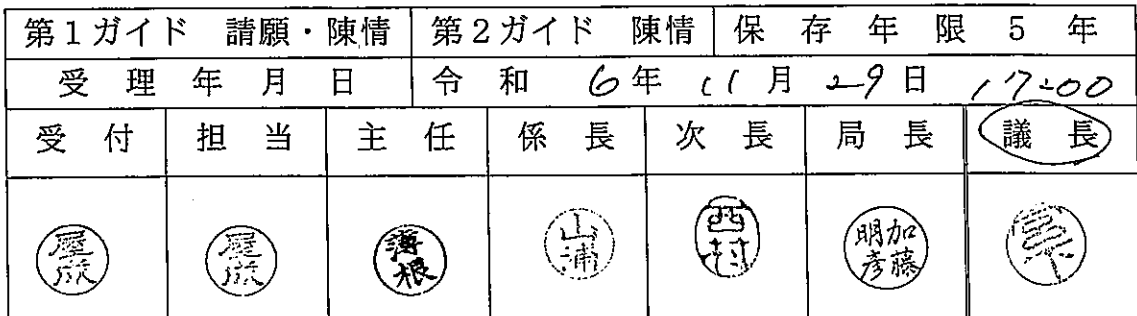 第1ガイド 請願・陳情 第2ガイド 陳情 保存年限5年
受理年月日 令和6年11月29日 17:00
受付 担当 主任 係長 次長 局長 議長
薄根 山浦 西村 加藤明彦